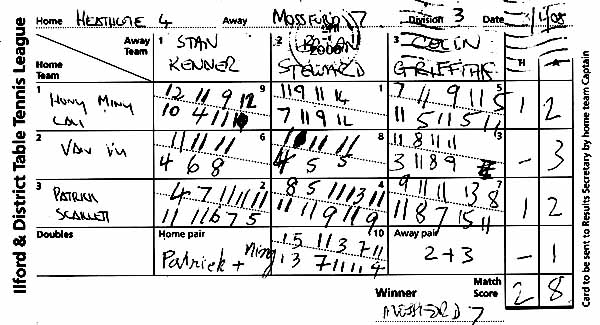 Ilford & District Table Tennis League
Home HEATHCOTE 4 Away MOSSFORD 7 Division 3 Date
Away Team 1 STAN KENNER 2 STEWARD 3 COLIN GRIFFITHS H A
Home Team
1 HONG MINH 9 1 5
12 11 9 12 11 9 11 14 7 11 9 11 5 1 2
10 4 11 10 7 11 9 12 11 5 11 5 11
2 6 8 3
11 11 11 11 11 11 8 11 11 - 3
4 6 8 4 5 5 3 11 8 9
3 PATRICK SCARLETT 2 4 7
4 7 11 11 11 8 5 11 13 11 9 11 11 13 8 1 2
11 11 6 7 5 11 11 9 11 9 11 8 7 15 11
Doubles Home pair 10 Away pair
Patrick + Ming 15 11 3 7 11 2+3 - 1
13 7 11 11 4
Winner MOSSFORD 7 Match Score 2 8
Card to be sent to Results Secretary by home team Captain